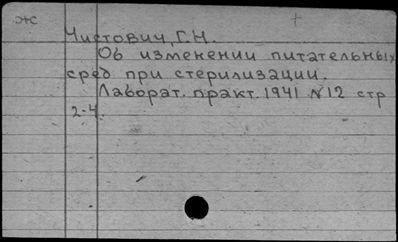 ж
Чистович, Г.Н.
Об изменении питательных
сред при стерилизации.
Лаборат. практ. 1941 №12 стр
2-4.